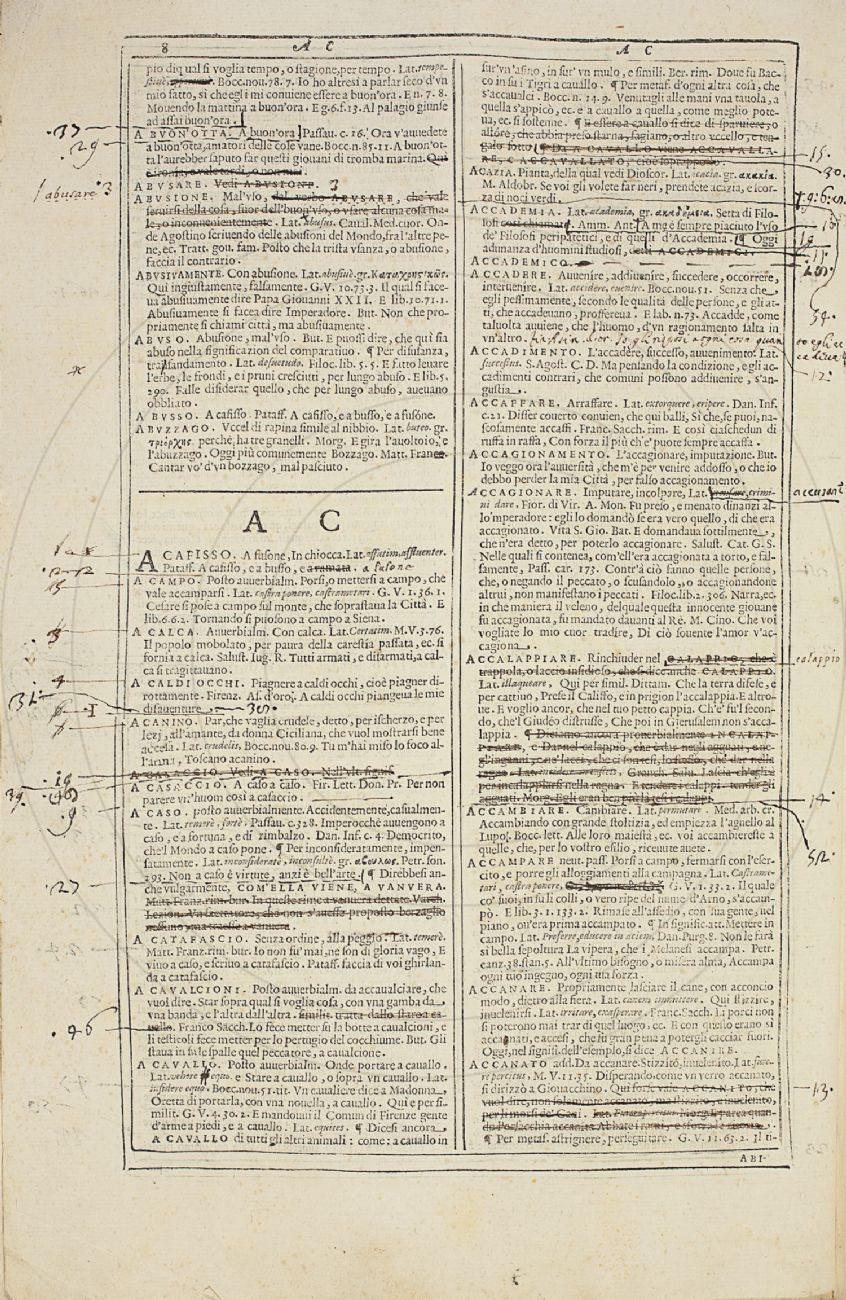 8 A C A C
pio di qual si voglia tempo, o stagione, per tempo. Lat. tempe-
stiuè, Bocc. nou. 78. 7. Io ho altresi a parlar seco d'vn
mio fatto, sì che egli mi conuiene essere a buon'ora. E n. 7. 8.
Mouendo la mattina a buon'ora. E g. 6. f. 13. Al palagio giunse
ad assai buon'ora.
.37
A BVON'OTTA. A buon'ora. Passau. c. 16. Ora v'auuedete
.29
a buon'otta, amatori delle cose vane. Bocc. n. 85. 11. A buon'ot-
ta l'aurebber saputo far questi giouani di tromba marina. Qui
è ironia, o vale tardi, o non mai.
ABVSARE. Vedi ABVSIONE. 3
abusare 3
ABVSIONE. Mal'vso, dal verbo ABVSARE, che vale
seruirsi della cosa, fuor dell'buon'vso, o vsare alcuna cosa ma-
le, o inconuenientemente. Lat. abusus. Caual. Med. cuor. On-
de Agostino scriuendo delle abusioni del Mondo, fra l'altre pe-
ne, ec. Tratt. gou. fam. Posto che la trista vsanza, o abusione,
faccia il contrario.
ABVSIVAMENTE. Con abusione. Lat. abusiuè. gr. καταχρηστικῶς.
Qui ingiustamente, falsamente. G. V. 10. 73. 3. Il qual si face-
ua abusiuamente dire Papa Giouanni XXII. E lib. 10. 71. 1.
Abusiuamente si facea dire Imperadore. But. Non che pro-
priamente si chiami città, ma abusiuamente.
ABVSO. Abusione, mal'vso. But. E puossi dire, che quì sia
abuso nella significazion del comparatiuo. ¶ Per disusanza,
trasandamento. Lat. desuetudo. Filoc. lib. 5. 5. E fatto leuare
l'erbe, le frondi, e i pruni cresciuti, per lungo abuso. E lib. 5.
290. Falle disiderar quello, che per lungo abuso, aueuano
obbliato.
ABVSSO. A cafisso. Pataff. A cafisso, e a busso, e a fusone.
ABVZZAGO. Vccel di rapina simile al nibbio. Lat. buteo. gr.
τριόρχης. perchè, ha tre granelli. Morg. E gira l'auoltoio, e
l'abuzzago. Oggi più comunemente Bozzago. Matt. Franc.
Cantar vo' d'vn bozzago, mal pasciuto.
A C
A CAFISSO. A fusone, In chiocca. Lat. affatim, affluenter.
Pataff. A cafisso, e a busso, e a ramata. a fusone
A CAMPO. Posto auuerbialm. Porsi, o mettersi a campo, che
15
vale accamparsi. Lat. castra ponere, castrametari. G. V. 1. 36. 1.
Cesare si pose a campo sul monte, che soprastaua la Città. E
lib. 6. 6. 2. Tornando si puosono a campo a Siena.
A CALCA. Auuerbialm. Con calca. Lat. Certatim. M. V. 3. 76.
Il popolo mobolato, per paura della carestia passata, ec. si
fornìa a calca. Salust. Iug. R. Tutti armati, e disarmati, a cal-
ca si tragittauano.
A CALDI OCCHI. Piagnere a caldi occhi, cioè piagner di-
rottamente. Firenz. As. d'oro. A caldi occhi piangeua le mie
disauenture. 30.
A CANINO. Par, che vaglia crudele, detto, per ischerzo, e per
lezj, all'amante, da donna Ciciliana, che vuol mostrarsi bene
accesa. Lat. crudelis. Bocc. nou. 80. 9. Tu m'hai miso lo foco al-
l'arma, Toscano acanino.
A CASACCIO. Vedi A CASO. Nell'vlt. signif.
A CASACCIO. A caso a caso. Fir. Lett. Don. Pr. Per non
parere vn'huom così a casaccio.
A CASO. posto auuerbialm. Accidentemente, casualmen-
te. Lat. temerè, fortè. Passau. c. 328. Imperocchè auuengono a
caso, e a fortuna, e di rimbalzo. Dan. Inf. c. 4. Democrito,
che'l Mondo a caso pone. ¶ Per inconsideratamente, impen-
satamente. Lat. inconsideratè, inconsultè. gr. ἀβούλως. Petr. son.
293. Non a caso è virtute, anzi è bell'arte. ¶ Direbbesi an-
.27
che vulgarmente, COM'ELLA VIENE, A VANVERA.
Matt. Franz. rim. bur. In queste rime a vanuera dettate. Varch.
Lezion. Vn saettatore, che non s'auesse proposto berzaglio
nessuno, ma traesse a vanuera.
A CATAFASCIO. Senza ordine, alla peggio. Lat. temerè.
Matt. Franz. rim. bur. Io non fu' mai, ne son di gloria vago, E
viuo a caso, e scriuo a catafascio. Pataff. faccia di voi ghirlan-
da a catafascio.
A CAVALCIONI. Posto auuerbialm. da accaualciare, che
vuol dire. Star sopra qual si voglia cosa, con vna gamba da
vna banda, e l'altra dall'altra. similit. tratta dallo stare a ca-
uallo. Franco Sacch. Lo fece metter su la botte a caualcioni, e
.46
li testicoli fece metter per lo pertugio del cocchiume. But. Gli
staua in su le spalle quel peccatore, a caualcione.
A CAVALLO. Posto auuerbialm. Onde portare a cauallo.
Lat. vehere equo. e Stare a cauallo, o sopra vn cauallo. Lat.
insidere equo. Bocc. nou. 51. tit. Vn caualiere dice a Madonna
Oretta di portarla, con vna nouella, a cauallo. Qui è per si-
milit. G. V. 4. 30. 2. E mandouui il Comun di Firenze gente
d'arme a piedi, e a cauallo. Lat. equites. ¶ Dicesi ancora
A CAVALLO di tutti gli altri animali: come: a cauallo in
sur'vn'asino, in sur' vn mulo, e simili. Ber. rim. Doue fu Bac-
co in su i Tigri a cauallo. ¶ Per metaf. d'ogni altra cosa, che
s'accaualci. Bocc. n. 14. 9. Venutagli alle mani vna tauola, a
quella s'appiccò, ec. e a cauallo a quella, come meglio pote-
ua, ec. si sostenne. ¶ E essere a cauallo si dice di sparuiere, o
astore, che abbia preso starna, fagiano, o altro vccello, e ten-
galo sotto. ¶ Da A CAVALLO viene ACCAVALLA-
RE, e ACCAVALLATO, cioè soprapposto.
15.
ACAZIA. Pianta, della qual vedi Dioscor. Lat. acacia. gr. ακακία.
30.
M. Aldobr. Se voi gli volete far neri, prendete acazia, e scor-
za di noci verdi.
ACCADEMIA. Lat. academia, gr. ακαδημία. Setta di Filo-
sofi così chiamata. Amm. Ant. A me è sempre piaciuto l'vso
de' Filosofi peripatetici, e di quelli d'Accademia. ¶ Oggi
adunanza d'huomini studiosi, vedi ACCADEMICI.
ACCADEMICO.
ACCADERE. Auuenire, addiuenire, succedere, occorrere,
interuenire. Lat. accidere, euenire. Bocc. nou. 51. Senza che
egli pessimamente, secondo le qualità delle persone, e gli at-
ti, che accadeuano, profereua. E lab. n. 73. Accadde, come
taluolta auuiene, che l'huomo, d'vn ragionamento salta in
vn'altro.
54.
ACCADIMENTO. L'accadère, successo, auuenimento. Lat.
successus. S. Agost. C. D. Ma pensando la condizione, e gli ac-
12.
cadimenti contrari, che comuni possono addiuenire, s'an-
gustia.
ACCAFFARE. Arraffare. Lat. extorquere, eripere. Dan. Inf.
c. 21. Disser couerto conuien, che qui balli, Sì che, se puoi, na-
scosamente accaffi. Franc. Sacch. rim. E così ciaschedun di
ruffa in raffa, Con forza il più ch'e' puote sempre accaffa.
ACCAGIONAMENTO. L'accagionare, imputazione. But.
Io veggo ora l'auuersità, che m'è per venire addosso, o che io
debbo perder la mia Città, per falso accagionamento.
ACCAGIONARE. Imputare, incolpare, Lat. incusare, crimi-
accusare
ni dare. Fior. di Vir. A. Mon. Fu preso, e menato dinanzi al-
lo'mperadore: egli lo domandò se era vero quello, di che era
accagionato. Vita S. Gio. Bat. E domandaua sottilmente,
che n'era detto, per poterlo accagionare. Salust. Cat. G. S.
Nelle quali si contenea, com'ell'era accagionata a torto, e fal-
samente, Pass. car. 173. Contr'a ciò fanno quelle persone,
che, o negando il peccato, o scusandolo, o accagionandone
altrui, non manifestano i peccati. Filoc. lib. 2. 306. Narra, ec.
in che maniera il veleno, del quale questa innocente giouane
fu accagionata, fu mandato dauanti al Rè. M. Cino. Che voi
vogliate lo mio cuor tradire, Di ciò souente l'amor v'ac-
cagiona.
ACCALAPPIARE. Rinchiuder nel CALAPPIO, che è
calappio
trappola, o laccio insidioso, che si dice anche CALAPPIO.
Lat. illaqueare. Qui per simil. Dittam. Che la terra difese, e
per cattiuo, Prese il Califfo, e in prigion l'accalappia. E altro-
ue. E voglio ancor, che nel tuo petto cappia. Ch'e' fu'l secon-
do, che'l Giudéo distrusse, Che poi in Gierusalem non s'acca-
lappia. ¶ Diciamo ancora prouerbialmente INCALAP-
PIARE, e Dar nel calappio, che è dar negli agguati, e ne-
gl'inganni, e ne' lacci, che ci son tesi, lo stesso, che dar nella
ragna. Lat. insidijs irretiri. Granch. Salu. Lascia ch'egli è
per incalappiarsi nella ragna. E tendere i calappi. tender gli
agguati. Morg. Egli eran ben parati i calappi.
14.
ACCAMBIARE. Cambiare. Lat. permutare. Med. arb. cr.
Accambiando con grande stoltizia, ed empiezza l'agnello al
Lupo. Bocc. lett. Alle loro maiestà, ec. voi accambiereste a
52.
quelle, che, per lo vostro esilio, riceuute auete.
ACCAMPARE neut. pass. Porsi a campo, fermarsi con l'eser-
cito, e porre gli alloggiamenti alla campagna. Lat. Castrame-
tari, castra ponere, G. V. 1. 33. 2. Il quale
co' suoi, in su li colli, o vero ripe del fiume d'Arno, s'accam-
pò. E lib. 3. 1. 133. 2. Rimase all'assedio, con sua gente, nel
piano, ou'era prima accampato. ¶ In signific. att. Mettere in
campo. Lat. Proferre, educere in aciem, Dan. Purg. 8. Non le farà
sì bella sepoltura La vipera, che i Melanesi accampa. Petr.
canz. 38. stan. 5. All'vltimo bisogno, o misera alma, Accampa
ogni tuo ingegno, ogni tua forza.
ACCANARE. Propriamente, lasciare il cane, con acconcio
modo, dietro alla fiera. Lat. canem immittere. Qui stizzire,
inuelenirsi. Lat. irritare, exasperare. Franc. Sacch. Li porci non
si poterono mai trar di quel luogo, ec. E con questo erano sì
accanati, e accesi, che fu gran pena a potergli cacciar fuori.
Oggi, nel signific. dell'esemplo, si dice ACCANIRE.
ACCANATO add. Da accanare. Stizzito, inuelenito. Lat. face-
re percitus, M. V. 11. 35. Disperando, come vn verro accanato,
si dirizzò a Gioiacchino. Qui forse vale ACCANITO, che
13.
vuol dire, non solamente accanato, ma stizzito, e inuelenito,
per li morsi de' Cani. Lat.
¶ Per metaf. astrignere, perseguitare. G. V. 11. 63. 2. Il ti-
ABI-